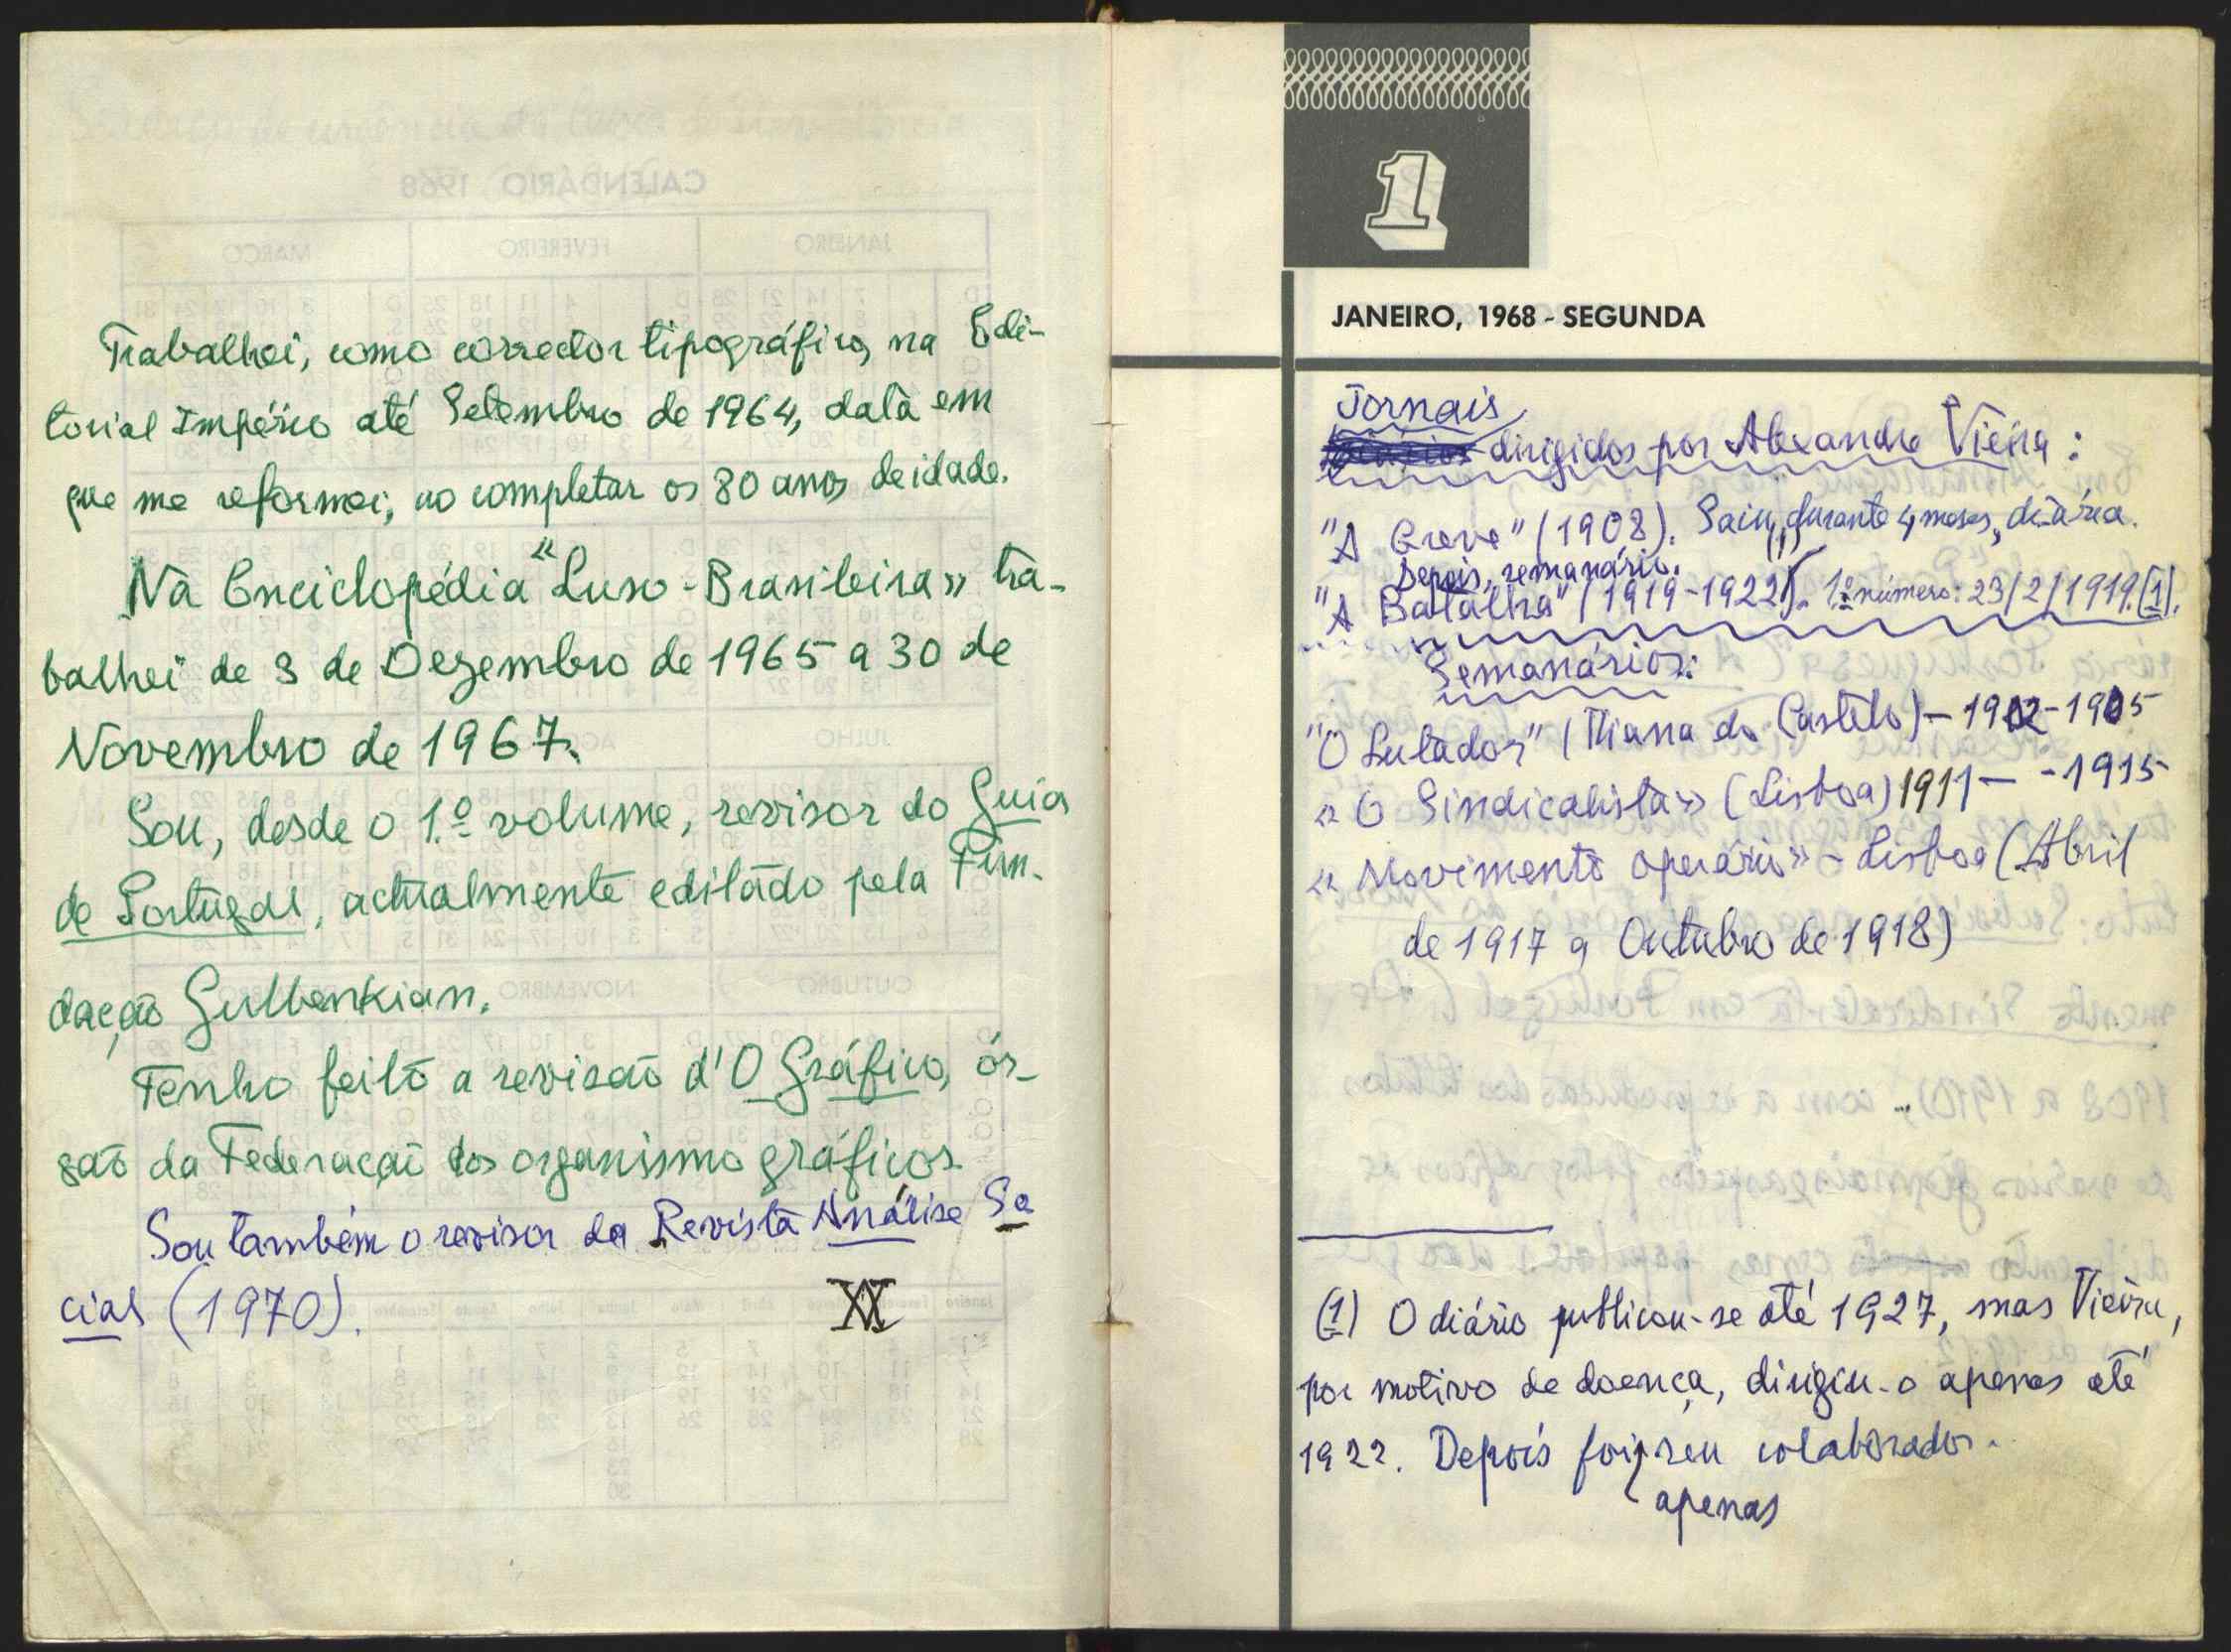 Trabalhei, como corrector tipográfico, na Edi-
torial Império até Setembro de 1964, data em
que me reformei, ao completar os 80 anos de idade.
Na Enciclopédia «Luso-Brasileira» tra-
balhei de 3 de Dezembro de 1965 a 30 de
Novembro de 1967.
Sou, desde o 1.º volume, revisor do Guia
de Portugal, actualmente editado pela Fun-
dação Gulbenkian.
Tenho feito a revisão d'O Gráfico, ór-
gão da Federação dos organismo gráficos.
Sou também o revisor da Revista Análise So
cial (1970).
1
JANEIRO, 1968 - SEGUNDA
Jornais
dirigidos por Alexandre Vieira:
"A Greve" (1908). Saiu, durante 4 meses, diária.
Depois, semanário.
"A Batalha" (1919-1922). 1.º número: 23/2/1919.(1).
Semanários:
"O Lutador" (Viana do Castelo) - 1902-1905
«O Sindicalista» (Lisboa) 1911 - -1915
«Movimento Operário» - Lisboa (Abril
de 1917 a Outubro de 1918)
(1) O diário publicou-se até 1927, mas Vieira,
por motivo de doença, dirigiu-o apenas até
1922. Depois foi seu colaborador.
apenas